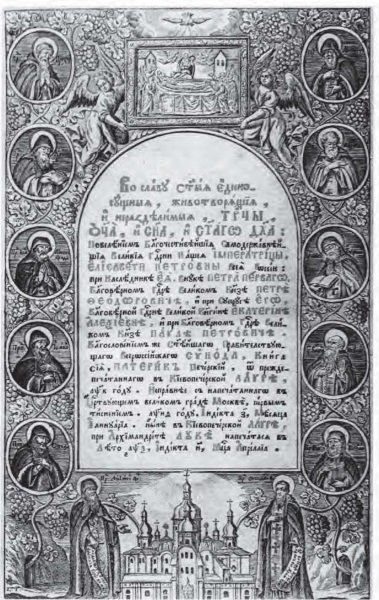 Во славу Ст҃ыѧ Единосущныѧ, животворѧщїѧ
и нераздѣлимыѧ ТРЦЫ,
ОЦ҃А, и СН҃А, и СТ҃АГѠ ДХ҃А:
Повелѣнїемъ Благочестивѣйшїѧ Самодержавнѣй
шїѧ Великїѧ Гдⷭ҇рни Нашеѧ ИМПЕРАТРИЦЫ,
ЕЛІСАВЕТЫ ПЕТРОВНЫ Всеѧ Россїи:
при Наслѣдникѣ ЕѦ, Внукѣ ПЕТРА ПЕРВАГѠ,
Благовѣрномъ Гдⷭ҇рѣ Великомъ Кнѧзѣ ПЕТРѢ
ѲЕОДОРОВИЧѢ, и при Супругѣ ЕГѠ,
Благовѣрной Гдⷭ҇рнѣ Великой Кнѧгинѣ ЕКАТЕРИНѢ
АЛЕѮІЕВНѢ, и при Благовѣрномъ Гдⷭ҇рѣ Вели
комъ Кнѧзѣ ПАВЛѢ ПЕТРОВИЧѢ,
Благословенїемъ же Ст҃ѣйшагѡ Правителствую
щагѡ Всероссїйскагѡ СѴНОДА, Книга
сїѧ, ПАТЕРИКЪ Печерскїй, ѿ прежде
печатаннагѡ въ Кїевопечерской ЛАѴРѢ,
году. Исправнѣе съ напечатаннагѡ въ
Царствующемъ великомъ градѣ Москвѣ, первымъ
тисненїемъ году, Індїкта Мѣсѧца
Іаннуарїа. нынѣ въ Кїевопечерской ЛАѴРѢ
при Архїмандрїтѣ ЛУКѢ напечатасѧ въ
Лѣто Індїкта Мцⷭ҇а Апрїллїа.